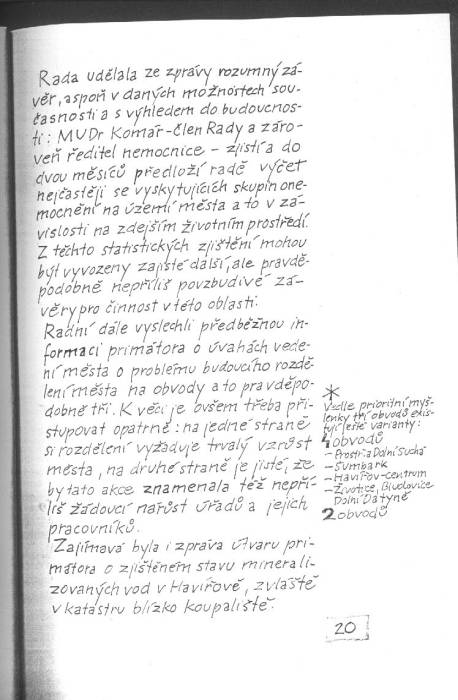 Rada udělala ze zprávy rozumný zá-
věr, aspoň v daných možnostech sou-
časnosti a s výhledem do budoucnos-
ti: MUDr Komár - člen Rady a záro-
veň ředitel nemocnice - zjistí a do
dvou měsíců předloží radě výčet
nejčastěji se vyskytujících skupin one-
mocnění na území města a to v zá-
vislosti na zdejším životním prostředí.
Z těchto statistických zjištění mohou
být vyvozeny zajisté další, ale pravdě-
podobně nepříliš povzbudivé zá-
věry pro činnost v této oblasti.
Radní dále vyslechli předběžnou in-
formaci primátora o úvahách vede-
ní města o problému budoucího rozdě-
lení města na obvody a to pravděpo-
dobně tři. K věci je ovšem třeba při-
stupovat opatrně: na jedné straně
si rozdělení vyžaduje trvalý vzrůst
města, na druhé straně je jisté, že
by tato akce znamenala též nepří-
liš žádoucí nárůst úřadů a jejich
pracovníků.
Zajímavá byla i zpráva útvaru pri-
mátora o zjištěném stavu minerali-
zovaných vod v Havířově, zvláště
v katastru blízko koupaliště.
*
Vedle prioritní myš-
lenky tří obvodů exis-
tují ještě varianty:
4 obvodů
- Prostř. a Dolní Suchá
- Šumbark
- Havířov-centrum
- Životice, Bludovice
Dolní Datyně
2 obvodů
20